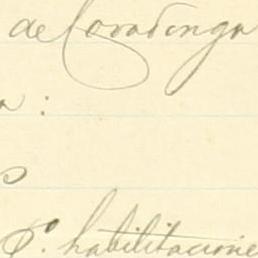 de Covadonga
a:
S.º habilitacione